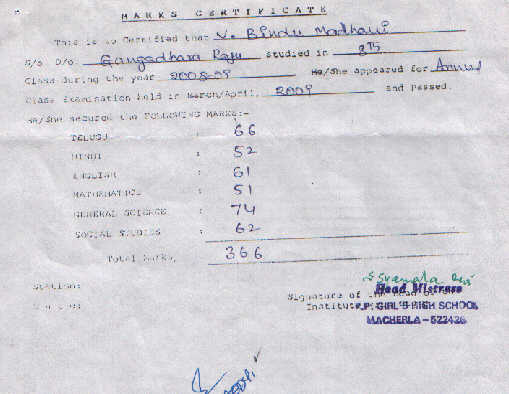 MARKS CERTIFICATE
This is to Certified that V. Bindu Madhavi
S/o D/o. Gangadhara Raju studied in 8th
Class during the year 2008-09 He/She appeared for Annual
Class Examination held in March/April, 2009 and Passed.
He/She secured the FOLLOWING MARKS:-
TELUGU : 66
HINDI : 52
ENGLISH : 61
MATHEMATICS : 51
GENERAL SCIENCE : 74
SOCIAL STUDIES : 62
Total Marks, 366
Station:
Head Mistress
Signature of the Head of the
Institute
GIRL'S HIGH SCHOOL
MACHERLA - 522426